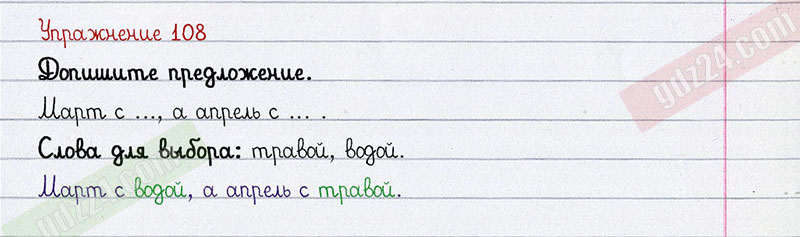 Упражнение 108
Допишите предложение.
Март с ..., а апрель с ... .
Слова для выбора: травой, водой.
Март с водой, а апрель с травой.
gdz24.com
gdz24.com